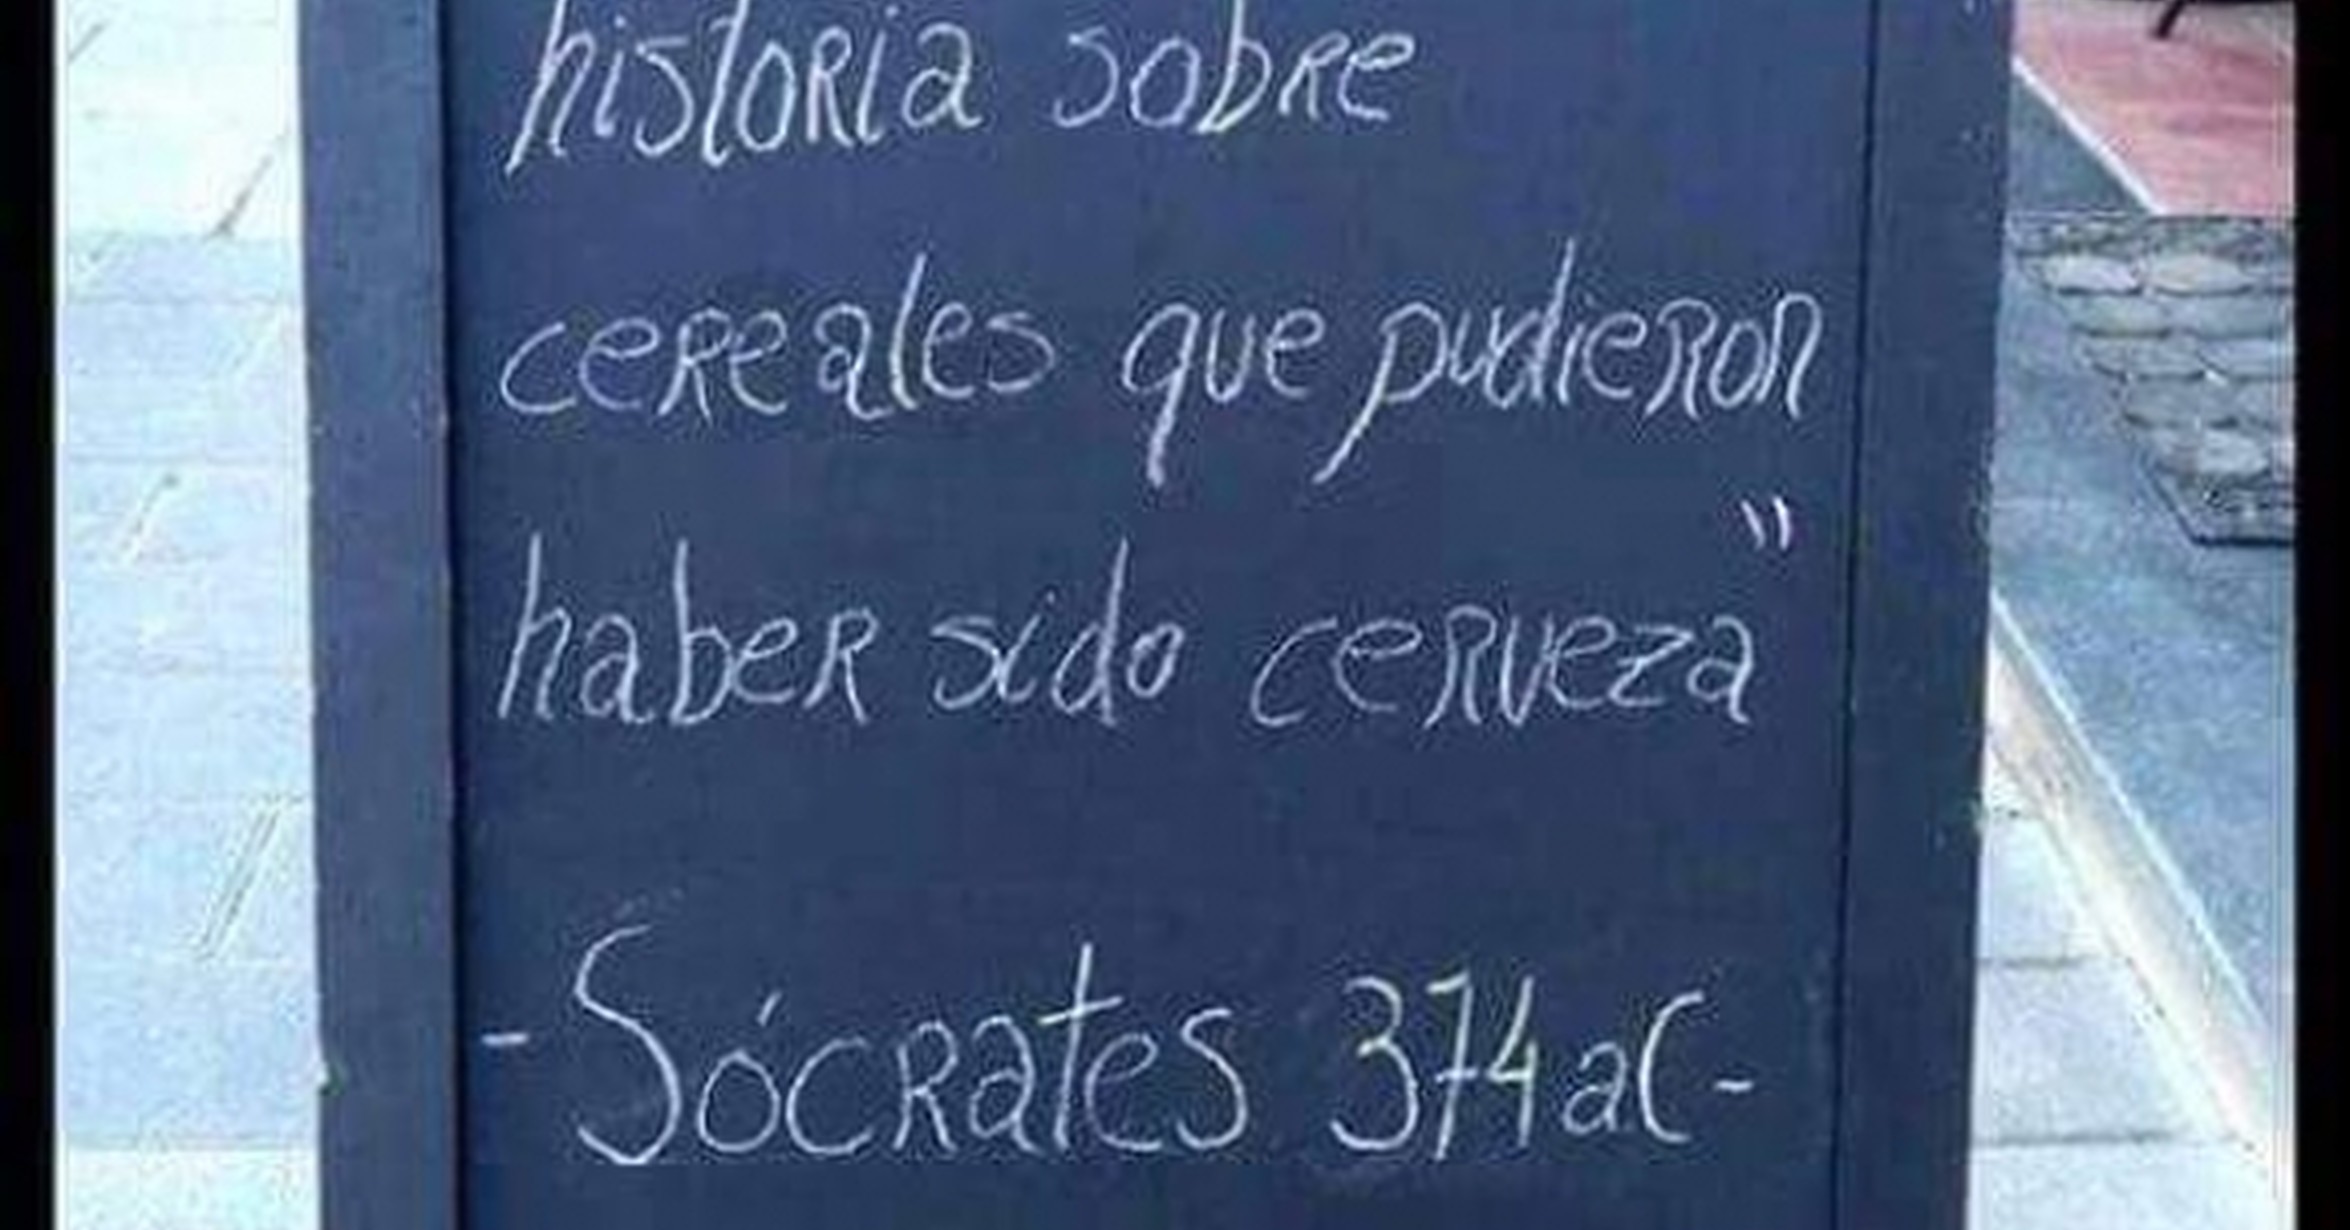 historia sobre
cereales que pudieron
haber sido cerveza"
-Sócrates 374aC-